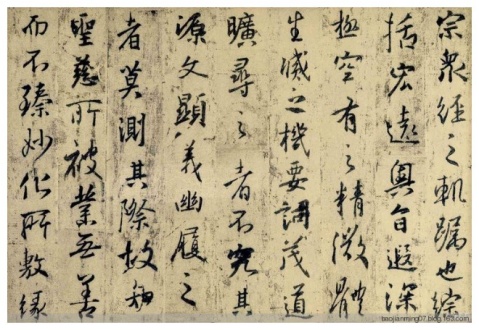 宗衆經之軌躅也綜
括宏遠奧旨遐深
極空有之精微體
生滅之機要詞茂道
曠尋之者不究其
源文顯義幽履之
者莫測其際故知
聖慈所被業无善
而不臻妙化所敷緣
taojianming07.blog.163.com